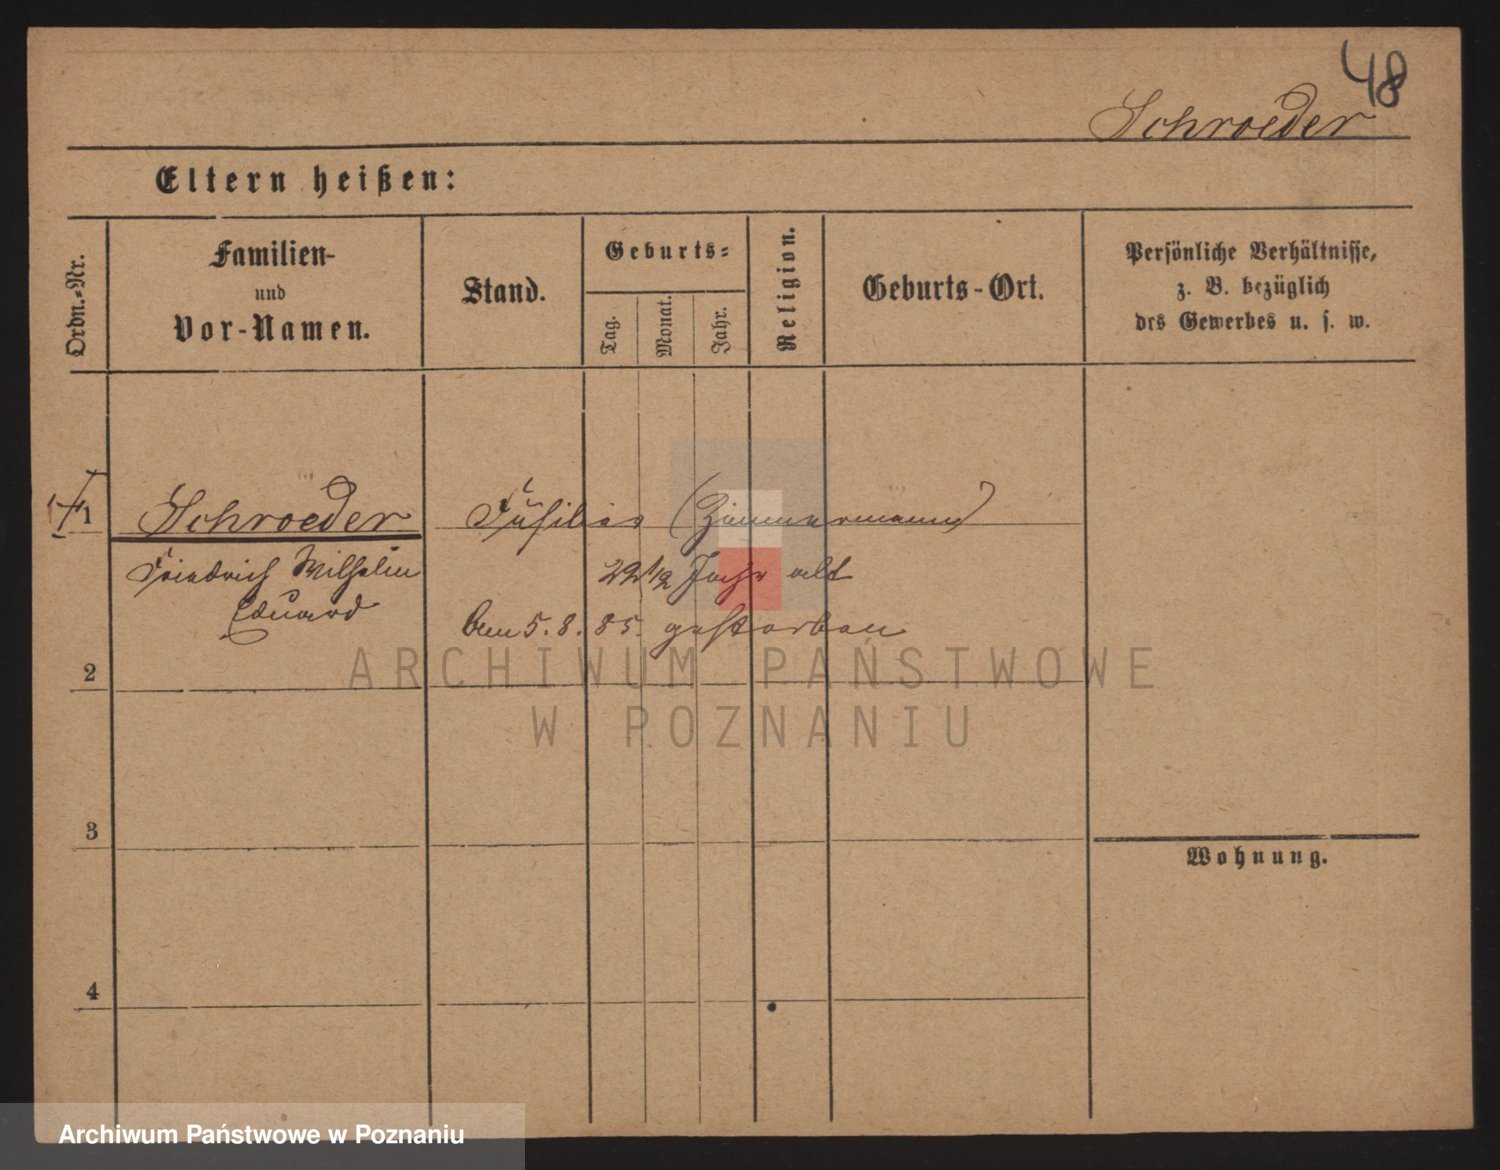 48
Schroeder
Eltern heißen:
Ordn.-Nr.
Familien-
und
Vor-Namen.
Stand.
Geburts-
Tag.
Monat.
Jahr.
Religion.
Geburts-Ort.
Persönliche Verhältnisse,
z. B. bezüglich
des Gewerbes u. s. w.
1
Schroeder
Füsilier (Zimmermann)
Friedrich Wilhelm
Eduard
Jahr alt
5. 8. 85. gestorben
ARCHIWUM PAŃSTWOWE
W POZNANIU
2
3
Wohnung.
4
Archiwum Państwowe w Poznaniu